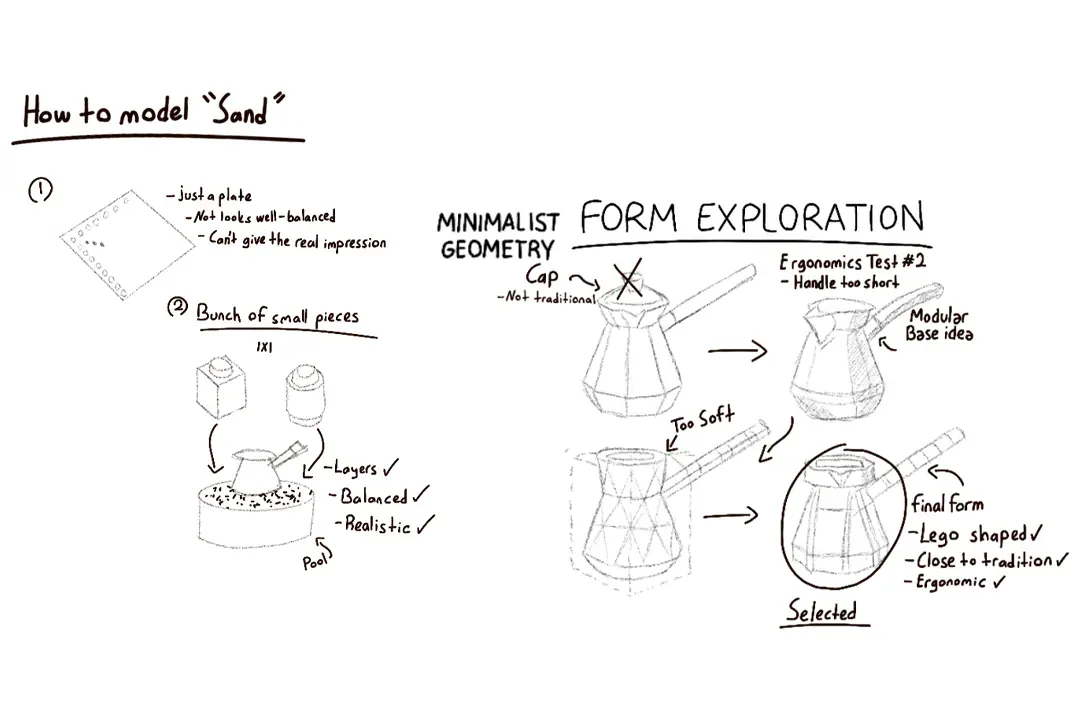 How to model "Sand"
①
-just a plate
-Not looks well-balanced
-Can't give the real impression
② Bunch of small pieces
1X1
-Layers ✓
-Balanced ✓
-Realistic ✓
Pool
MINIMALIST
GEOMETRY
FORM EXPLORATION
Cap
-Not traditional
Ergonomics Test #2
- Handle too short
Modular
Base idea
Too Soft
final form
-Lego shaped ✓
-Close to tradition ✓
-Ergonomic ✓
Selected